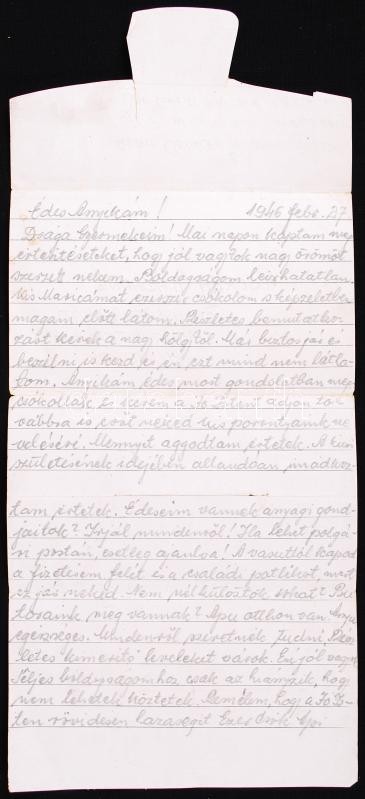 Édes Anyikám! 1946 febr. 27
Drága Gyermekeim! Mai napon kaptam meg
értesítéseteket, hogy jól vagytok nagy örömöt
szerzett nekem. Boldogságom leírhatatlan.
Kis Maricámat ezerszer csókolom s képzeletben
magam előtt látom. Részletes bemutatko-
zást kérek a nagy hölgytől. Már biztos jár és
beszélni is kezd, és én ezt mind nem látha-
tom. Anyikám édes most gondolatban meg-
csókollak és kérem a Jó Istent adjon to-
vábbra is erőt neked kis porontyaink ne-
velésére. Mennyit aggódtam értetek. A kicsi
születésének idejében állandóan imádkoz-
tam értetek. Édeseim vannek anyagi gond-
jaitok? Írjál mindenről! Ha lehet polgá-
ri postán, esetleg ajánlva! A vasúttól kapod
a fizetésem felét és a családi pótlékot, mert
ez jár neked. Nem nélkülöztök sokat?
meg vannak? Apu otthon van. Anyu
egészséges. Mindenről szeretnék tudni. Rész-
letes kimerítő leveleket várok. Én jól vagyok
Teljes boldogságomhoz csak az hiányzik, hogy
nem lehetek köztetek. Remélem, hogy a Jó Is-
ten rövidesen hazasegít Ezer csók Api